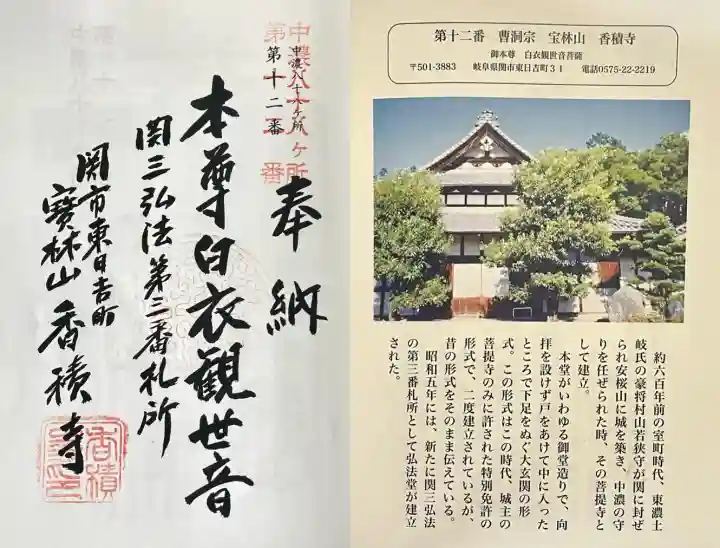 中濃八十八ヶ所
第十二番
中濃八十八ヶ所
第十二番
奉納
本尊白衣観世音
関三弘法第三番札所
関市東日吉町
寳林山香積寺
第十二番 曹洞宗 宝林山 香積寺
御本尊 白衣観世音菩薩
〒501-3883 岐阜県関市東日吉町31 電話0575-22-2219
約六百年前の室町時代、東濃土
岐氏の豪将村山若狭守が関に封ぜ
られ安桜山に城を築き、中濃の守
りを任ぜられた時、その菩提寺と
して建立。
本堂がいわゆる御堂造りで、向
拝を設けず戸をあけて中に入った
ところで下足をぬぐ大玄関の形
式。この形式はこの時代、城主の
菩提寺のみに許された特別免許の
形式で、二度建立されているが、
昔の形式をそのまま伝えている。
昭和五年には、新たに関三弘法
の第三番札所として弘法堂が建立
された。